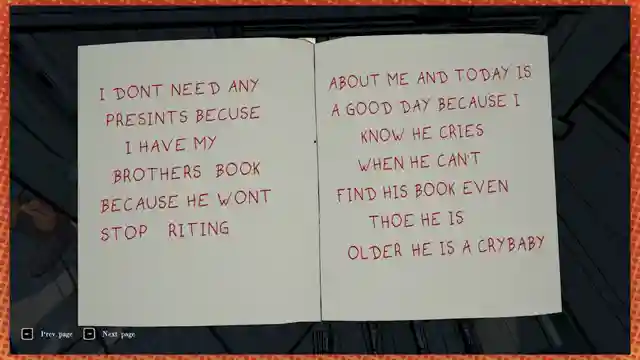 I DONT NEED ANY
PRESINTS BECUSE
I HAVE MY
BROTHERS BOOK
BECAUSE HE WONT
STOP RITING
ABOUT ME AND TODAY IS
A GOOD DAY BECAUSE I
KNOW HE CRIES
WHEN HE CAN'T
FIND HIS BOOK EVEN
THOE HE IS
OLDER HE IS A CRYBABY
Prev. page
Next page